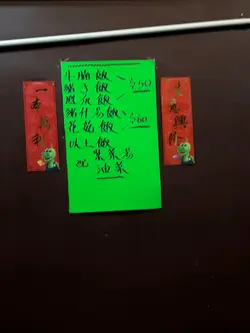 牛腩飯
豬手飯
$50
鳳爪飯
豬什湯飯
$60
花菇飯
以上飯
配 紫菜湯
油菜
一本萬利
生意興隆